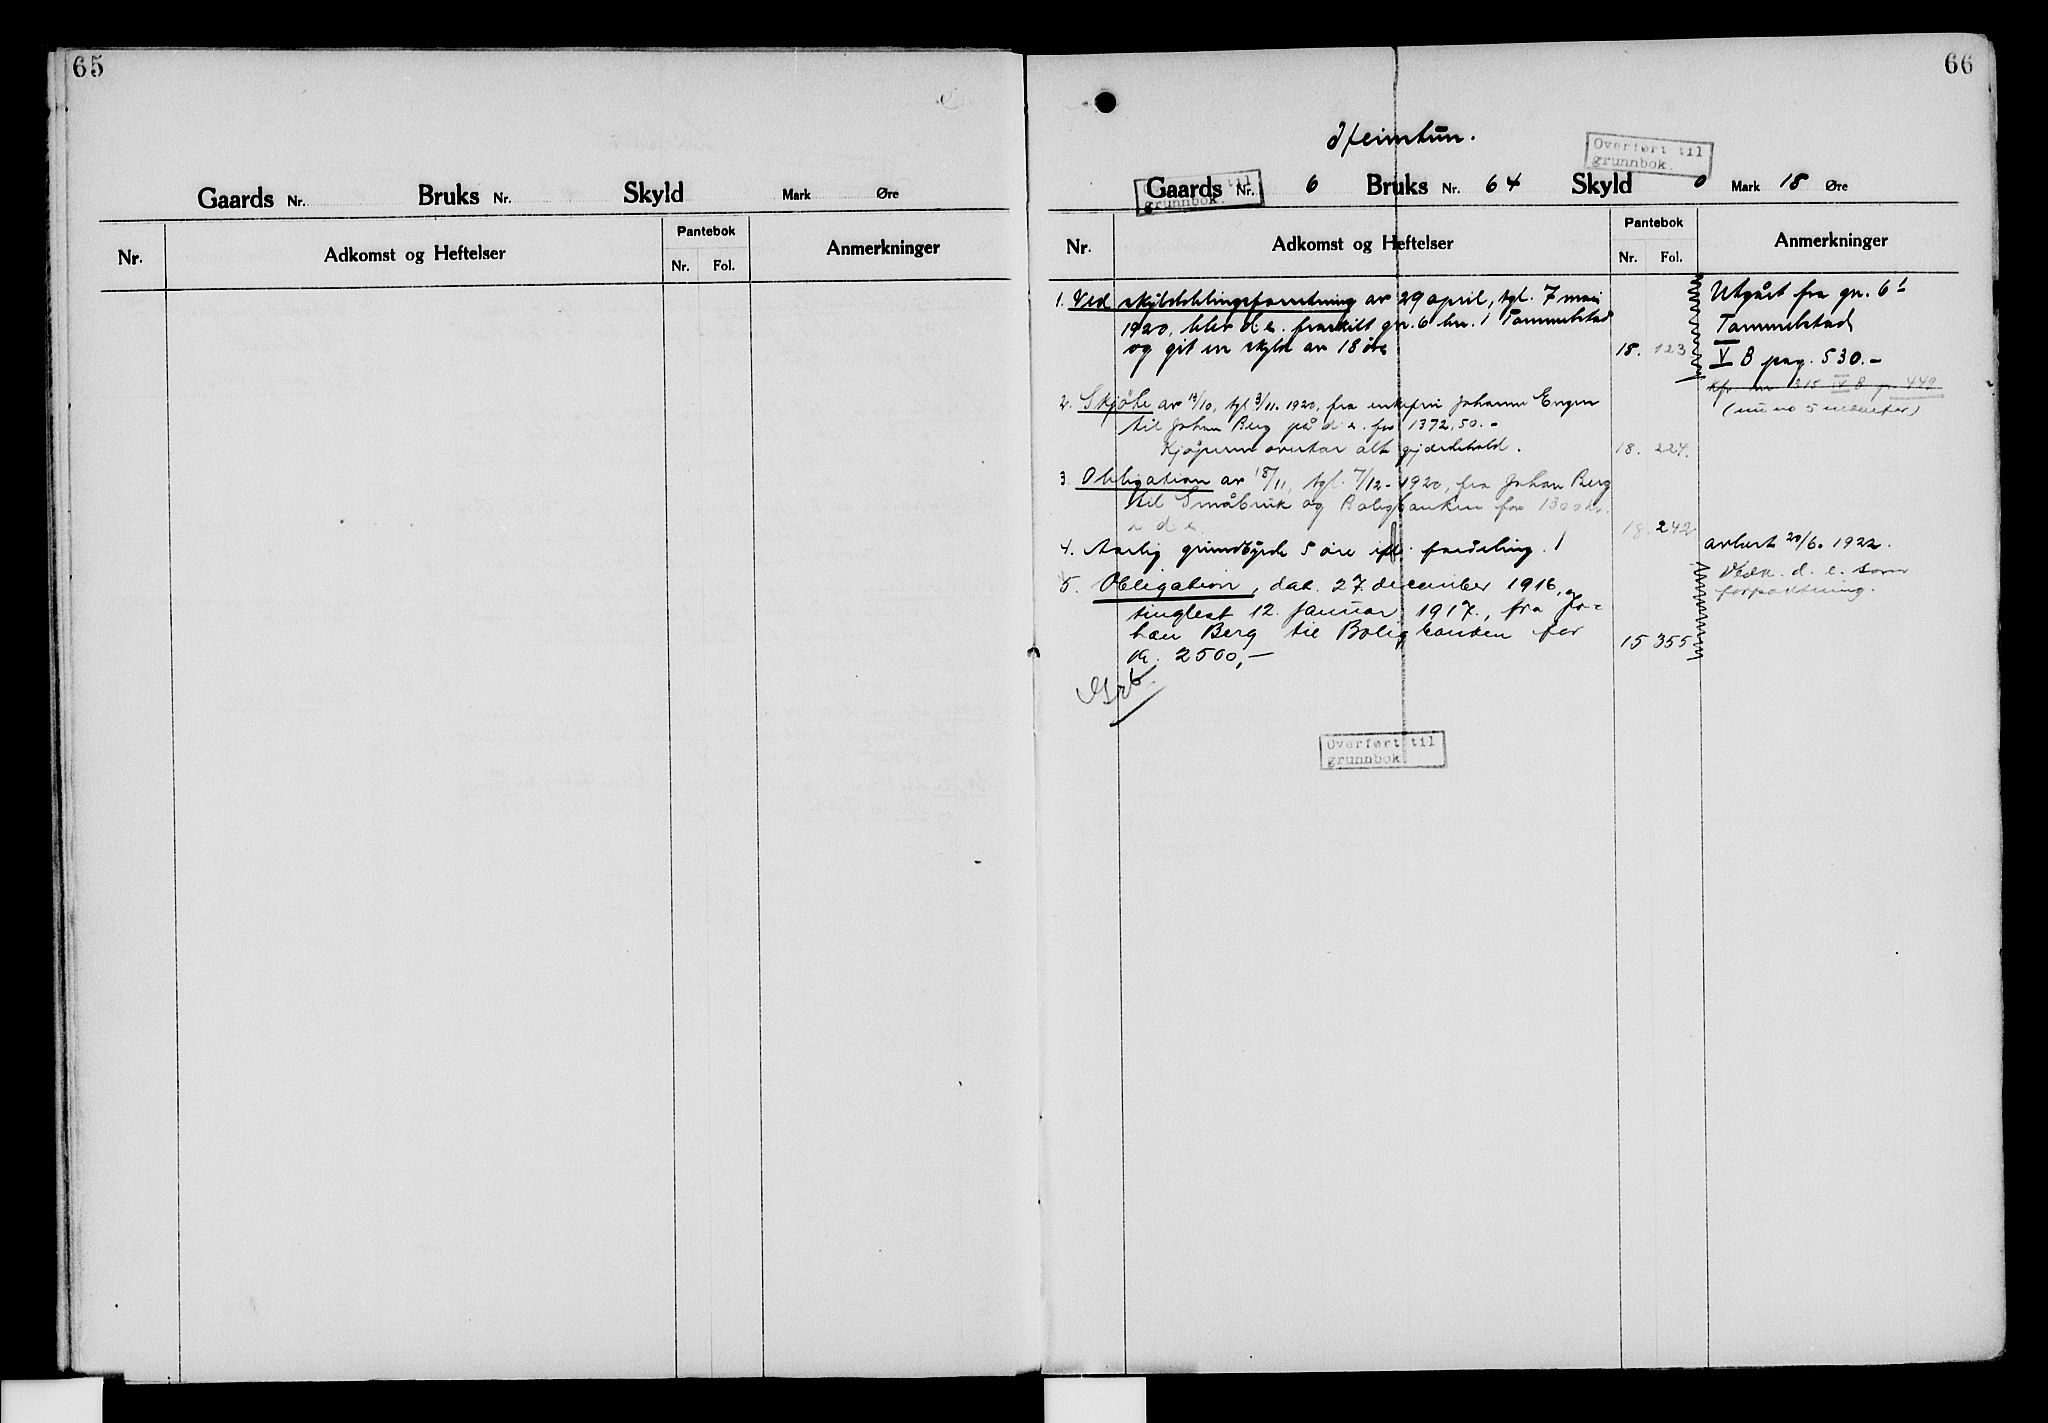 65
Gaards Nr. Bruks Nr. Skyld Mark Øre
Nr. Adkomst og Heftelser Pantebok Nr. Fol. Anmerkninger
66
Heimtun.
Overført til
grunnbok.
Gaards Nr. 6 Bruks Nr. 64 Skyld 0 Mark 18 Øre
grunnbok.
Nr. Adkomst og Heftelser Pantebok Nr. Fol. Anmerkninger
1. Ved skylddelingsforretning av 29 april, tgl. 7 mai
1920, blev d. e. fraskilt gn. 6 bn. 1 Tommelstad
og git en skyld av 18 øre 18. 123
Utgått fra gn. 6 1
Tommelstad
V B pag. 530.-
IV B p. 449
2. Skjøte av 13/10, tgl. 3/11. 1920, fra enkefru Johanne Engen
til Johan Berg på d. e. for 1372,50.-
Kjøperen overtar alt gjærdehold. 18. 227.
3. Obligation av 18/11, tgl. 7/12-1920, fra Johan Berg
til Småbruk og Boligbanken for 1300 kr.
i d. e. 18. 242
4. Aarlig grundbyrde 5 øre ifl. fordeling. avløst 20/6. 1922.
5. Obligation, dat. 27. december 1916, og
tinglest 12. januar 1917., fra Jo-
han Berg til Boligbanken for
kr. 2500,- 15 355
Vedk. d. e. som
forpaktning.
Overført til
grunnbok.